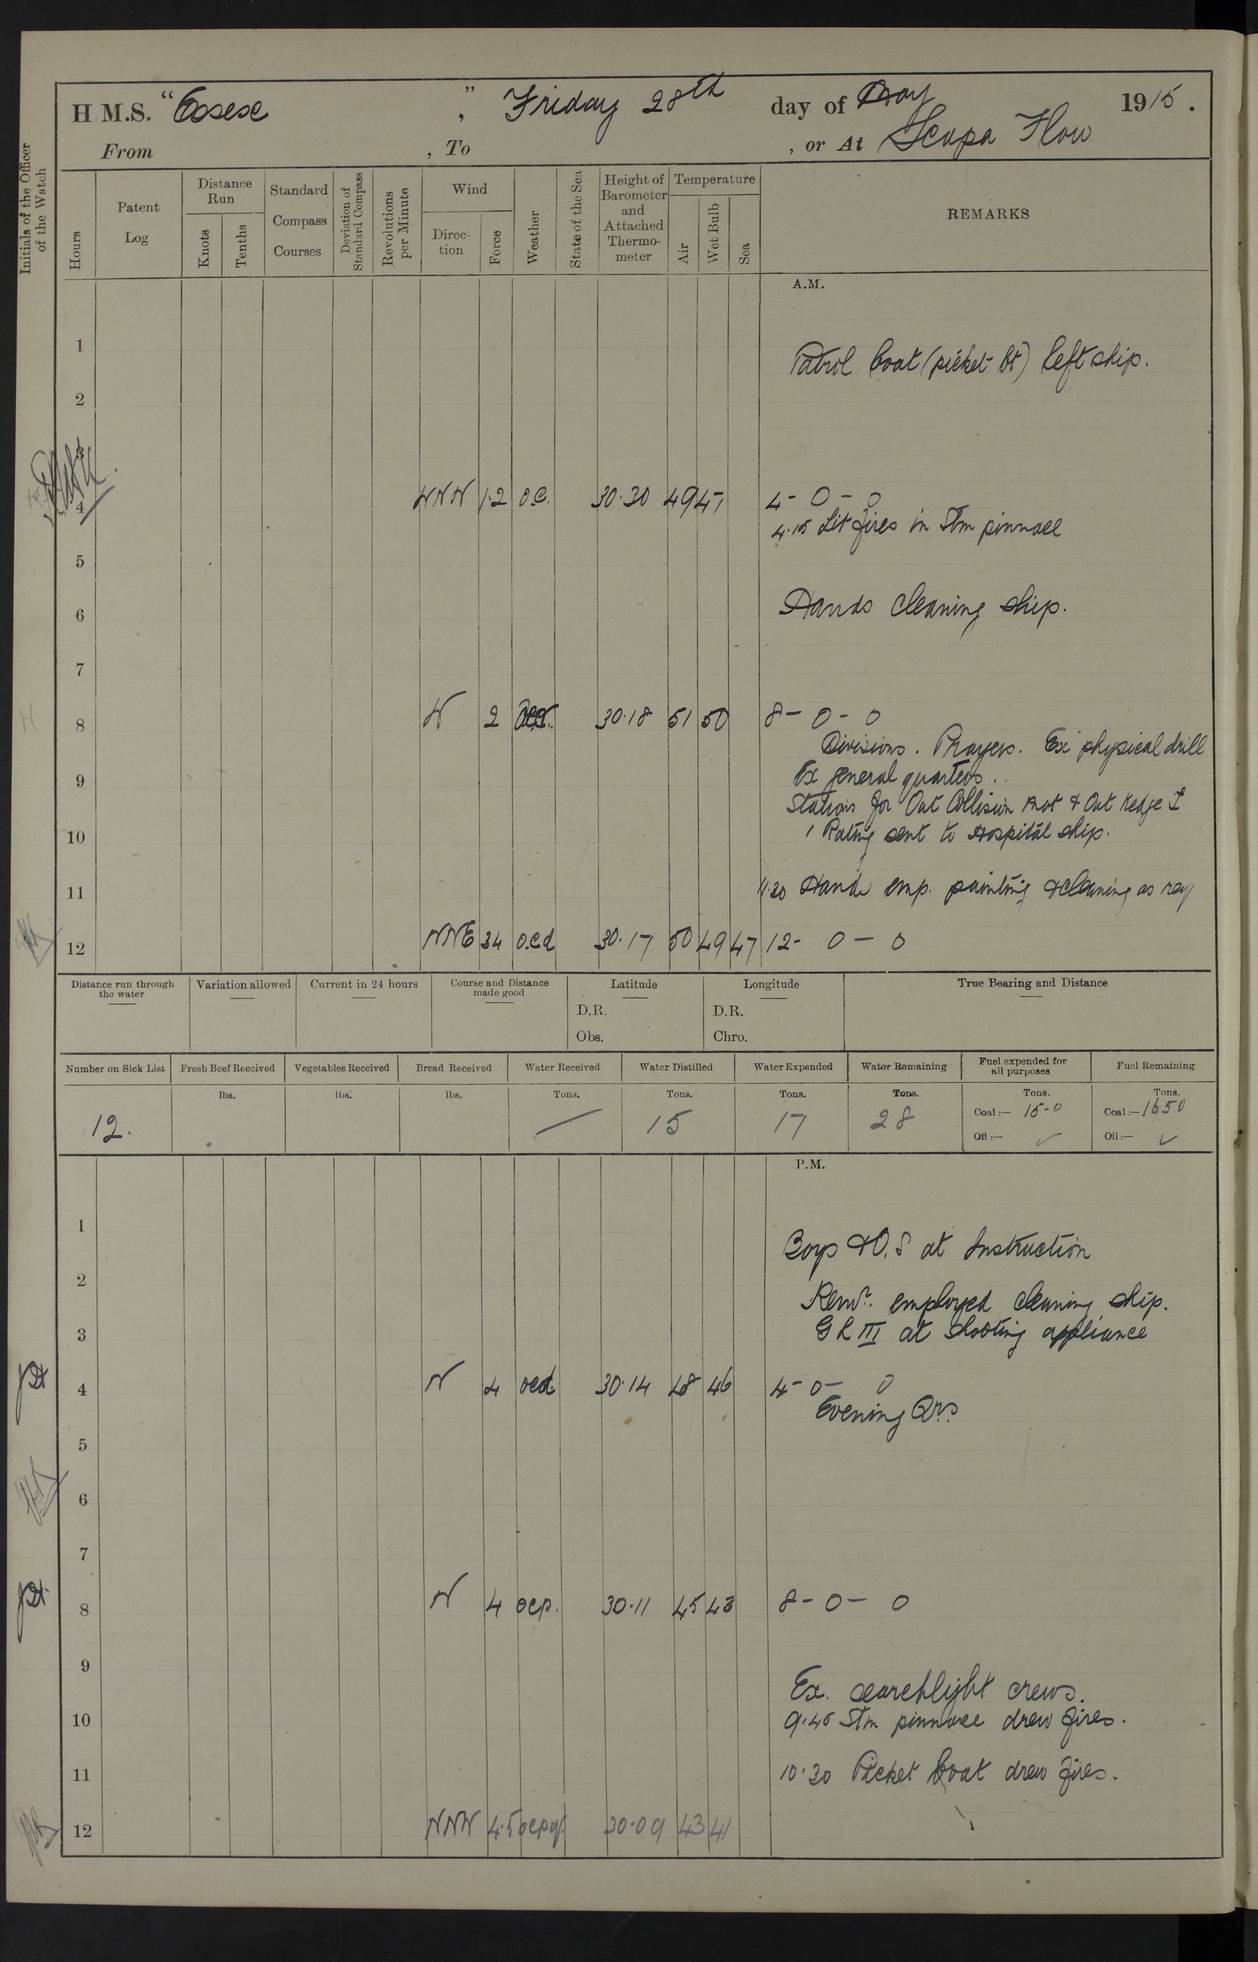 H.M.S. "Essex", Friday 28th day of May 1915.
From , To , or At Scapa Flow
Initials of the Officer of the Watch
Hours
Patent Log
Distance Run
Knots
Tenths
Standard Compass Courses
Deviation of Standard Compass
Revolutions per Minute
Wind
Direction
Force
Weather
State of the Sea
Height of Barometer and Attached Thermometer
Temperature
Air
Wet Bulb
Sea
REMARKS
A.M.
1
Patrol boat (picket bt) left ship.
2
3
4 1.2 o.c. 30.30 49 47 4 - 0 - 0
4.15 Lit fires in Stm pinnace
5
6 Hands cleaning ship.
7
8 W 2 30.18 51 50 8 - 0 - 0
Divisions. Prayers. Ex physical drill
9 Ex general quarters.
Stations for Out Collision mat & Out Kedge
10 1 Rating sent to Hospital ship.
11 11.30 Hands emp. painting & cleaning as req
12 NNE 34 o.c.d 30.17 50 49 47 12 - 0 - 0
Distance run through the water
Variation allowed
Current in 24 hours
Course and Distance made good
Latitude
D.R.
Obs.
Longitude
D.R.
Chro.
True Bearing and Distance
Number on Sick List
Fresh Beef Received
Vegetables Received
Bread Received
Water Received
Water Distilled
Water Expended
Water Remaining
Fuel expended for all purposes
Fuel Remaining
lbs. lbs. lbs. Tons. Tons. Tons. Tons. Tons. Tons.
12. — 15 17 28 Coal:— 15-0 Coal:— 1650
Oil:— ✓ Oil:— ✓
P.M.
1
Boys & O.S at Instruction
2
Remr. employed cleaning ship.
3 G L III at shooting appliance
4 N 4 ocd 30.14 48 46 4 - 0 - 0
Evening Qrs.
5
6
7
8 N 4 ocp. 30.11 45 43 8 - 0 - 0
9
Ex. searchlight crews.
10 9.45 Stm pinnace drew fires.
11 10.30 Picket boat drew fires.
12 NNW 4.5 ocpq. 30.09 43 41